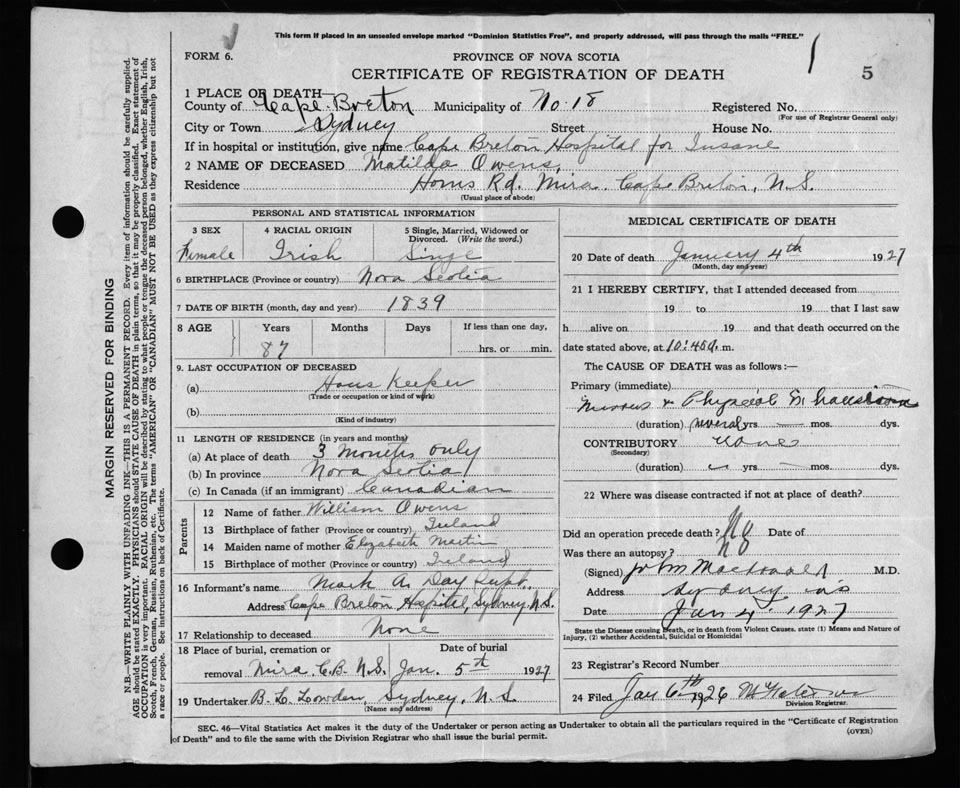 This form if placed in an unsealed envelope marked "Dominion Statistics Free", and properly addressed, will pass through the mails "FREE."
FORM 6.
PROVINCE OF NOVA SCOTIA
CERTIFICATE OF REGISTRATION OF DEATH
5
1 PLACE OF DEATH—
County of Cape Breton Municipality of No. 18 Registered No.
(For use of Registrar General only)
City or Town Sydney Street House No.
If in hospital or institution, give name Cape Breton Hospital for Insane
2 NAME OF DECEASED Matilda Owens,
Residence Horns Rd. Mira. Cape Breton, N.S.
(Usual place of abode)
PERSONAL AND STATISTICAL INFORMATION
3 SEX 4 RACIAL ORIGIN 5 Single, Married, Widowed or Divorced. (Write the word.)
Female Irish Single
6 BIRTHPLACE (Province or country) Nova Scotia
7 DATE OF BIRTH (month, day and year) 1839
8 AGE Years Months Days If less than one day,
87 hrs. or min.
9. LAST OCCUPATION OF DECEASED
(a) Hous Keeper
(Trade or occupation or kind of work)
(b)
(Kind of industry)
11 LENGTH OF RESIDENCE (in years and months)
(a) At place of death 3 months only
(b) In province Nova Scotia
(c) In Canada (if an immigrant) Canadian
Parents
12 Name of father William Owens
13 Birthplace of father (Province or country) Ireland
14 Maiden name of mother Elizabeth Martin
15 Birthplace of mother (Province or country) Ireland
16 Informant's name Mark A. Day Supt.
Address Cape Breton Hospital, Sydney, N.S.
17 Relationship to deceased None
18 Place of burial, cremation or Date of burial
removal Mira. C.B. N.S. Jan. 5th 1927
19 Undertaker B. L. Lowden, Sydney, N.S.
(Name and address)
MEDICAL CERTIFICATE OF DEATH
20 Date of death January 4th 1927
(Month, day and year)
21 I HEREBY CERTIFY, that I attended deceased from
19 to 19 that I last saw
h alive on 19 and that death occurred on the
date stated above, at 10:45 a. m.
The CAUSE OF DEATH was as follows:—
Primary (immediate)
Nervous & Physical Exhaustion
(duration) several yrs mos. dys.
CONTRIBUTORY None
(Secondary)
(duration) yrs mos. dys.
22 Where was disease contracted if not at place of death?
Did an operation precede death? No Date of
Was there an autopsy? No
(Signed) John Macdonald M.D.
Address Sydney NS
Date Jan 4. 1927
State the Disease causing Death, or in death from Violent Causes. state (1) Means and Nature of Injury, (2) whether Accidental, Suicidal or Homicidal
23 Registrar's Record Number
24 Filed Jan 6th 1926
Division Registrar.
SEC. 46—Vital Statistics Act makes it the duty of the Undertaker or person acting as Undertaker to obtain all the particulars required in the "Certificate of Registration of Death" and to file the same with the Division Registrar who shall issue the burial permit.
(OVER)
MARGIN RESERVED FOR BINDING
N.B.—WRITE PLAINLY WITH UNFADING INK—THIS IS A PERMANENT RECORD. Every item of information should be carefully supplied.
AGE should be stated EXACTLY. PHYSICIANS should STATE CAUSE OF DEATH in plain terms, so that it may be properly classified. Exact statement of
OCCUPATION is very important. RACIAL ORIGIN will be described by stating to what people or tongue the deceased person belonged, whether English, Irish,
Scotch, French, German, Russian, Ruthenian, etc. The terms "AMERICAN" OR "CANADIAN" MUST NOT BE USED as they express citizenship but not
a race or people. See instructions on back of Certificate.